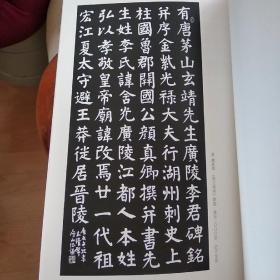 有唐茅山玄靖先生廣陵李君碑銘
并序金紫光祿大夫行湖州刺史上
柱國魯郡開國公顏真卿撰并書先
生姓李氏諱含光廣陵江都人本姓
弘以孝敬皇帝廟諱改焉廿一代祖
宏江夏太守避王莽徙居晉陵